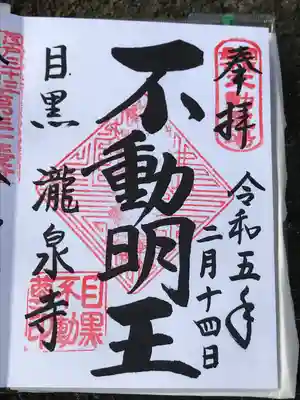 奉拝
令和五年
二月十四日
不動明王
目黒 瀧泉寺
目黒
不動